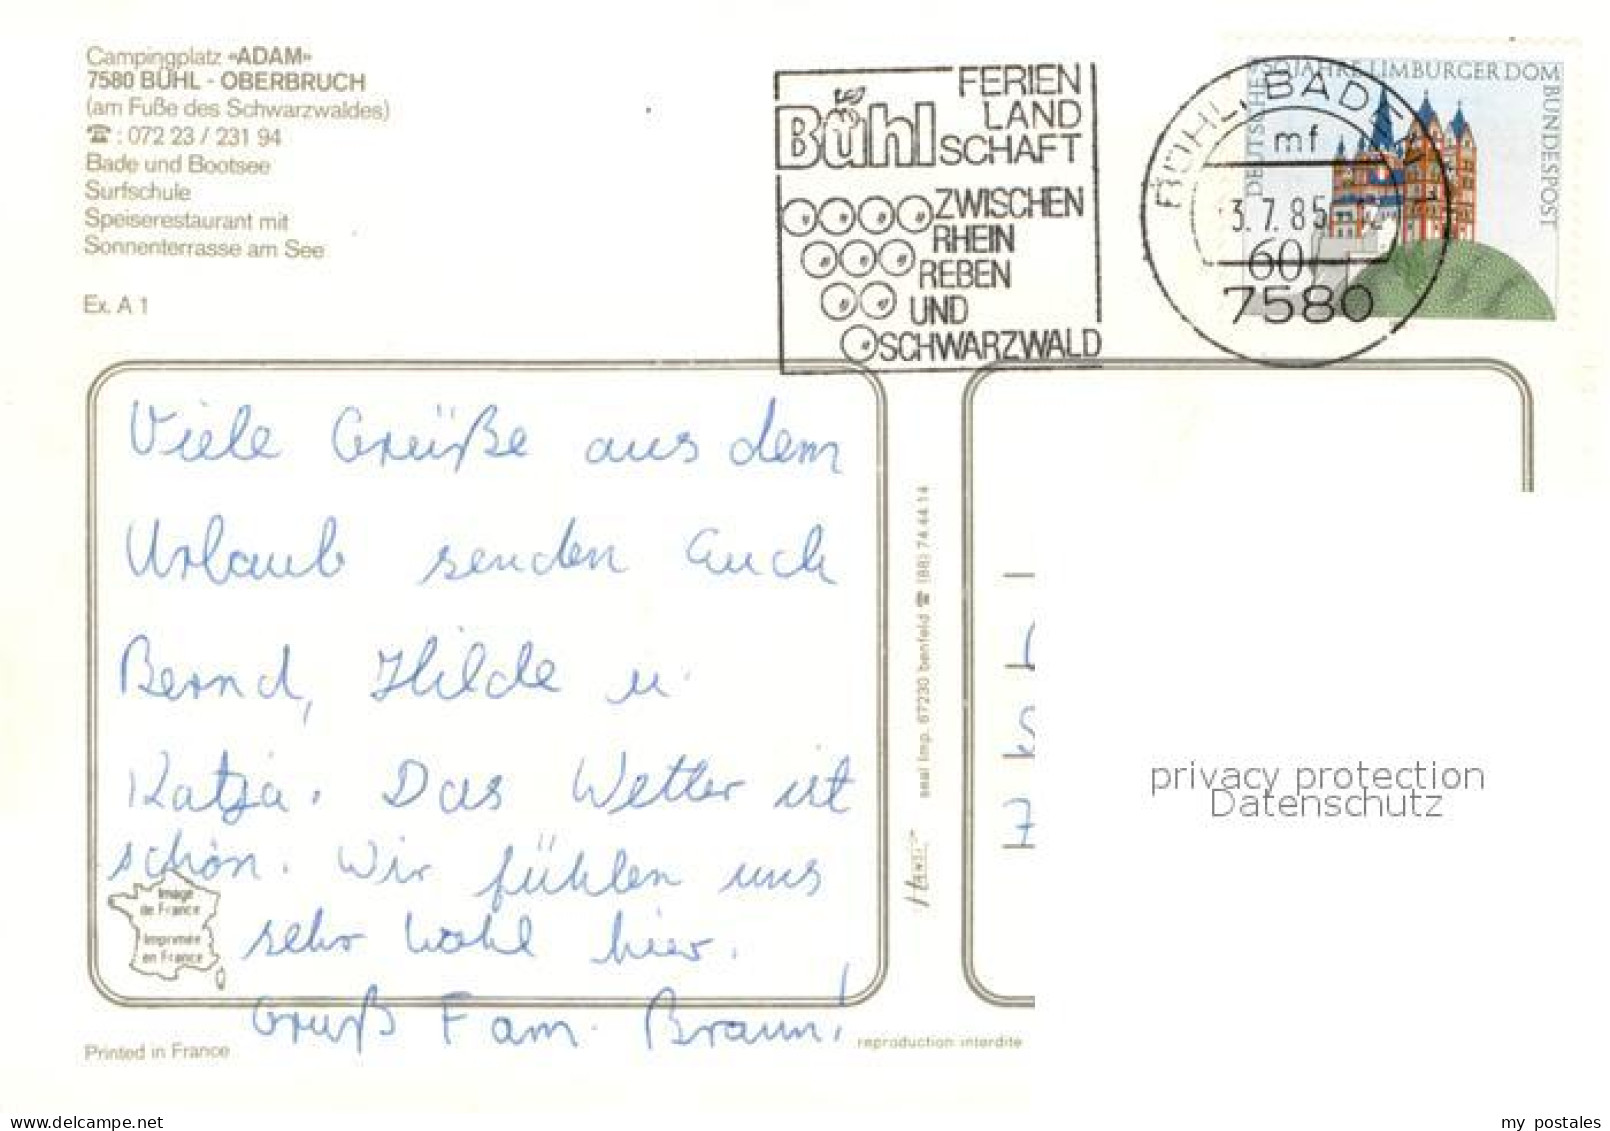 Campingplatz «ADAM»
7580 BÜHL - OBERBRUCH
(am Fuße des Schwarzwaldes)
☎ : 072 23 / 231 94
Bade und Bootsee
Surfschule
Speiserestaurant mit
Sonnenterrasse am See
Ex. A 1
Bühl
FERIEN
LAND
SCHAFT
ZWISCHEN
RHEIN
REBEN
UND
SCHWARZWALD
BÜHL, BADEN
mf
3.7.85
7580
750 JAHRE LIMBURGER DOM
DEUTSCHE
BUNDESPOST
60
Viele Grüße aus dem
Urlaub senden Euch
Bernd, Hilde u.
Katja. Das Wetter ist
schön. Wir fühlen uns
sehr wohl hier.
Gruß Fam. Braun!
Image
de France
Imprimée
en France
Printed in France
imp. 67230 benfeld ☎ (88) 74.44.14
reproduction interdite
privacy protection
Datenschutz
www.delcampe.net
my_postales